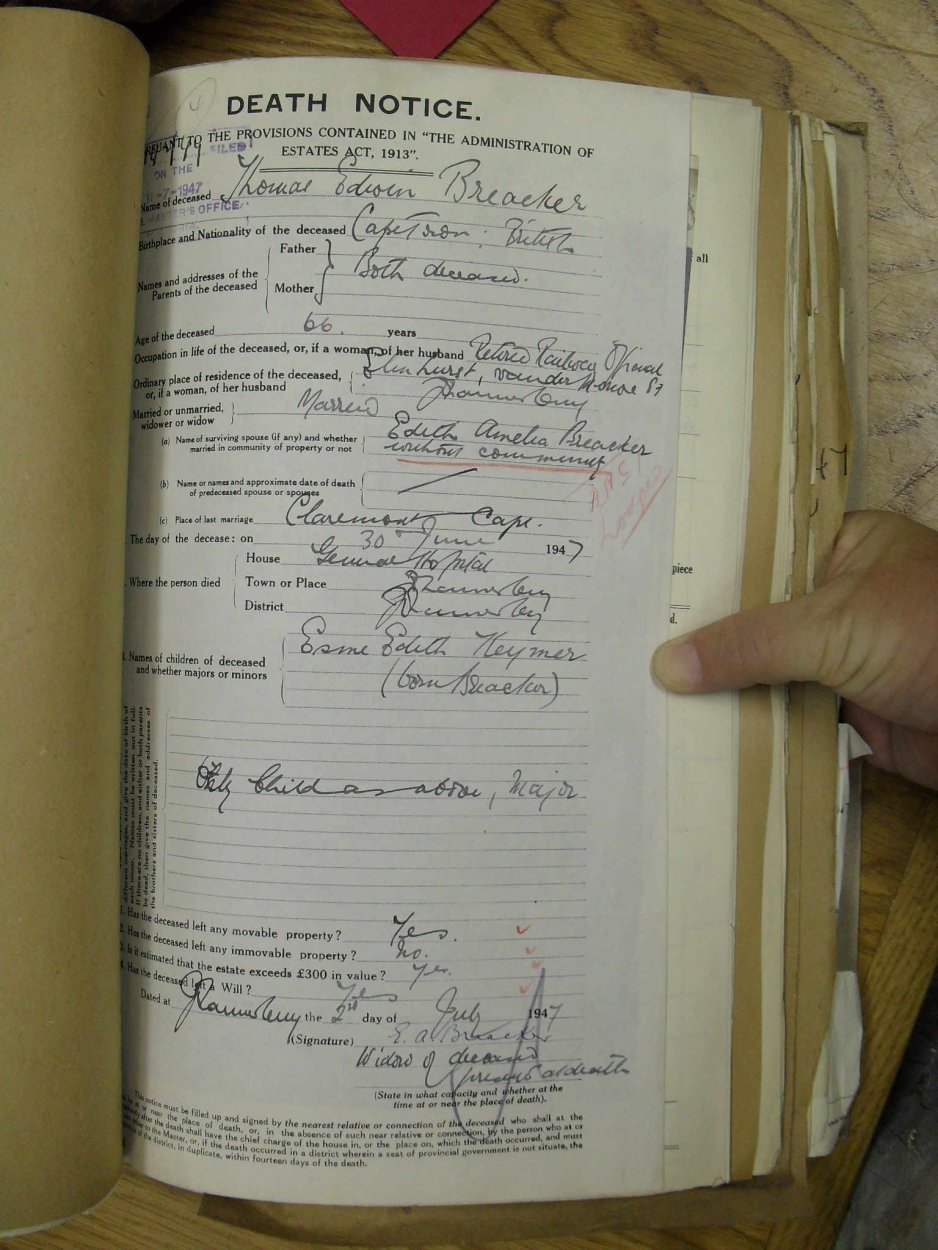 4
DEATH NOTICE.
TO THE PROVISIONS CONTAINED IN "THE ADMINISTRATION OF
ESTATES ACT, 1913".
FILED
ON THE
-7-1947
MASTER'S OFFICE
Name of deceased Thomas Edwin Breacker
Birthplace and Nationality of the deceased Cape Town : British
Names and addresses of the
Parents of the deceased
Father
Mother
Both deceased.
Age of the deceased 66. years
Occupation in life of the deceased, or, if a woman, of her husband Retired Railway Official
Ordinary place of residence of the deceased,
or, if a woman, of her husband
Elmhurst, van der Merwe St
Johannesburg
Married or unmarried,
widower or widow
Married
(a) Name of surviving spouse (if any) and whether
married in community of property or not
Edith Amelia Breacker
without community
A.N.C.
(b) Name or names and approximate date of death
of predeceased spouse or spouses
(c) Place of last marriage Claremont Cape.
The day of the decease: on 30 June 1947
Where the person died
House General Hospital
Town or Place Johannesburg
District Johannesburg
Names of children of deceased
and whether majors or minors
Esme Edith Keymer
(born Breacker)
Only Child as above, Major
1. Has the deceased left any movable property? Yes.
2. Has the deceased left any immovable property? No.
3. Is it estimated that the estate exceeds £300 in value? Yes.
4. Has the deceased left a Will? Yes
Dated at Johannesburg the 2nd day of July 1947
(Signature) E. A. Breacker
Widow of deceased
present at death
(State in what capacity and whether at the
time at or near the place of death).
This notice must be filled up and signed by the nearest relative or connection of the deceased who shall at the
at or near the place of death, or, in the absence of such near relative or connection, by the person who at or
after the death shall have the chief charge of the house in, or the place on, which the death occurred, and must
to the Master, or, if the death occurred in a district wherein a seat of provincial government is not situate, the
of the district, in duplicate, within fourteen days of the death.
different marriages, and give the date of birth of
each minor. Names must be written out in full.
If there are no children, and either or both parents
be dead, then give the names and addresses of
the brothers and sisters of deceased.
all
47
piece
d.